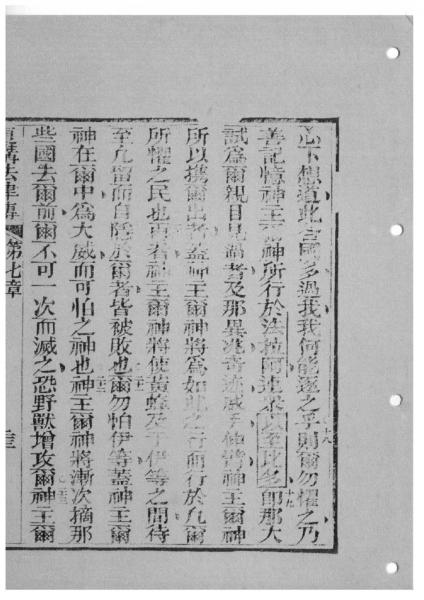 心下想道此言國多過我我何能逐之乎則爾勿懼之乃
善記憶神主爾神所行於法拉阿連眾以至比多即那大
試為爾親目見過者及那異兆奇迹威手伸臂神主爾神
所以攜爾出者蓋神主爾神將為如此之行而行於凡爾
所懼之民也再者神主爾神將使黃蜂及于伊等之間待
至凡留而自隱於爾者皆被敗也爾勿怕伊等蓋神主爾
神在爾中為大威而可怕之神也神主爾神將漸次摘那
些國去爾前爾不可一次而滅之恐野獸增攻爾神主爾
講法律傳 第七章